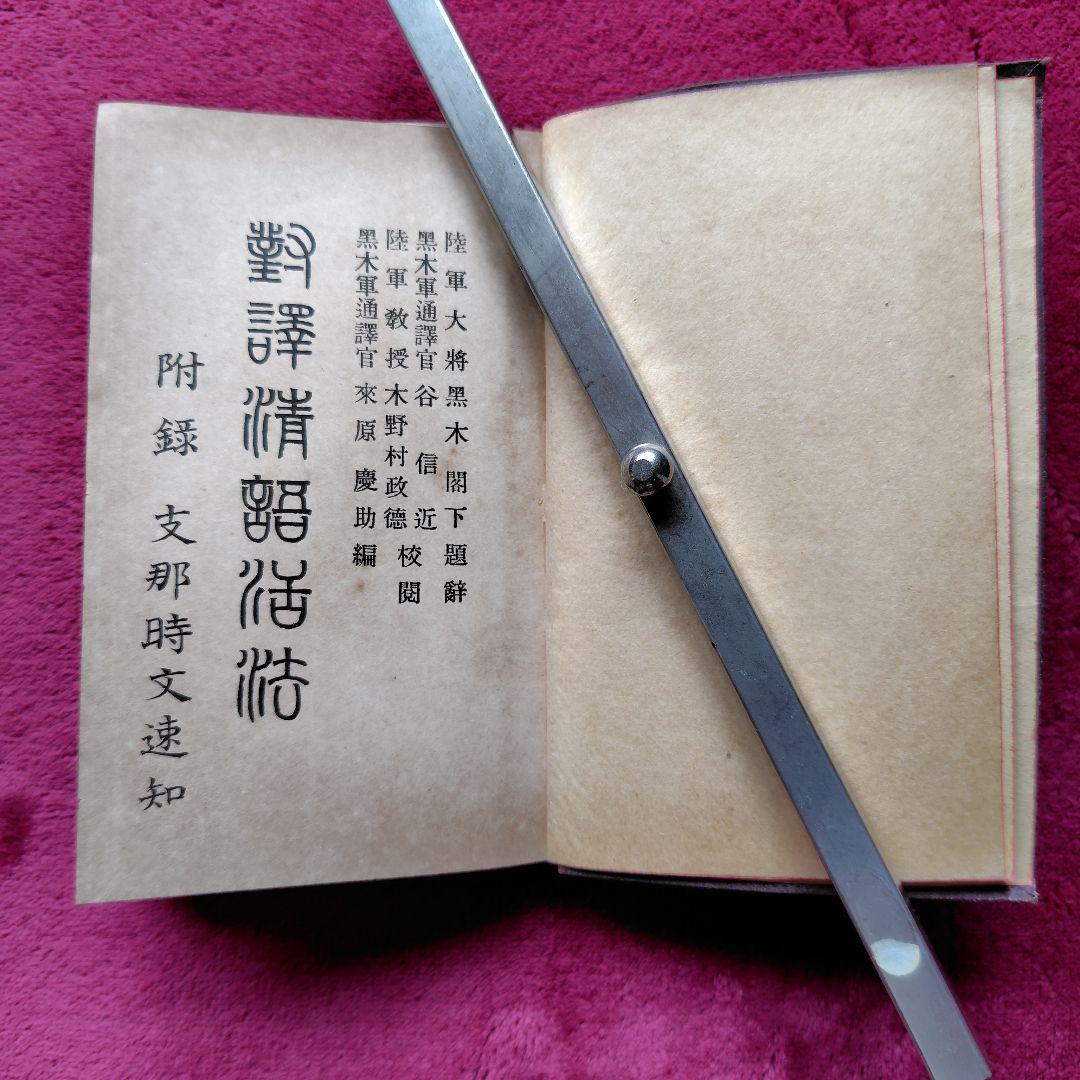 陸軍大將黑木閣下題辭
黑木軍通譯官谷信近
陸軍教授木野村政德
校閲
黑木軍通譯官來原慶助編
對譯清語活法
附錄 支那時文速知